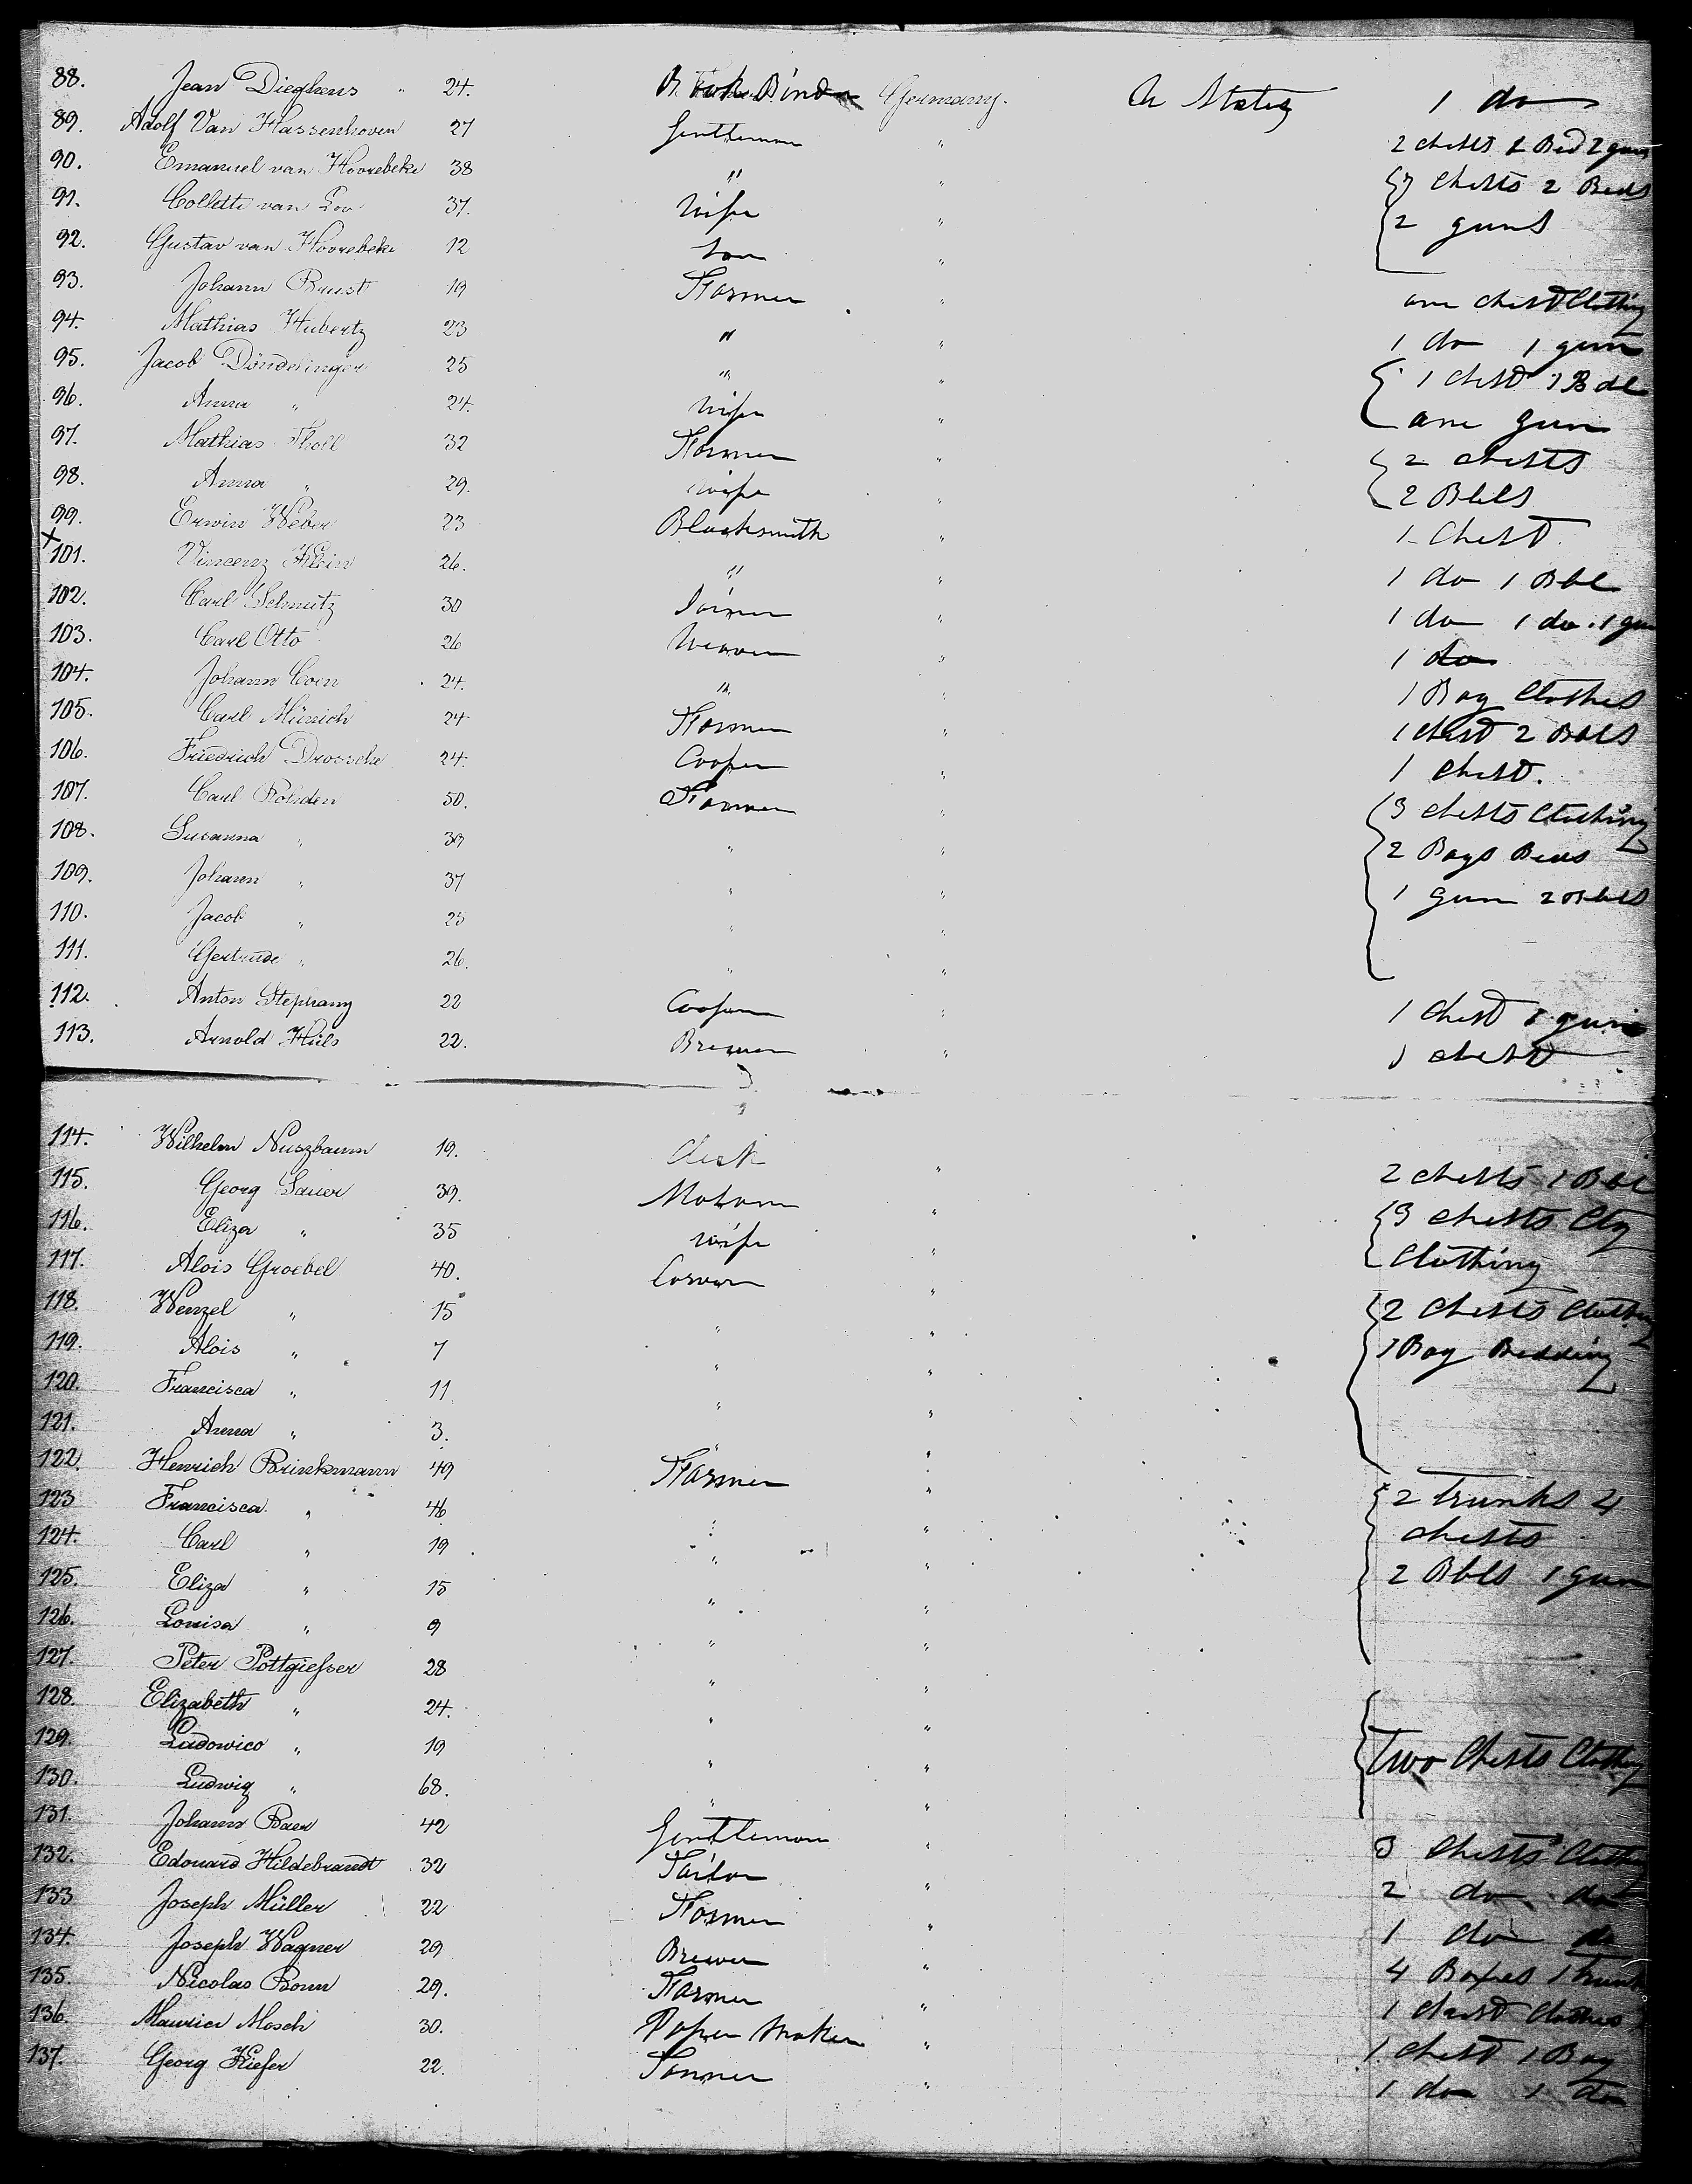 88. Jean Dieghens " 24. Book Binder Germany. U States 1 do
89. Adolf Van Hassenhoven 27 Gentleman " 2 chests 1 Bed 2 guns
90. Emanuel van Hoorebeke 38 " " 7 Chests 2 Beds
91. Collette van Loo 37. Wife " 2 guns
92. Gustav van Hoorebeke 12 Son "
93. Johann Brust 19 Farmer " one chest Clothing
94. Mathias Hubertz 23 " " 1 do 1 gun
95. Jacob Döndelinger 25 " " 1 chest 1 Bdl
96. Anna " 24. Wife " one gun
97. Mathias Tholl 32 Farmer " 2 chests
98. Anna " 29. Wife " 2 Bbls
99. Erwin Weber 23 Blacksmith " 1 Chest.
X
101. Vincenz Klein 26. " " 1 do 1 Bbl
102. Carl Schmitz 30 Joiner " 1 do 1 do. 1 gun
103. Carl Otto 26 Weaver " 1 do
104. Johann Coen 24. " " 1 Bag Clothes
105. Carl Münich 24 Farmer " 1 chest 2 Bbls
106. Friedrich Drossche 24. Cooper " 1 chest.
107. Carl Rohden 50. Farmer " 3 chests Clothing
108. Susanna " 39 " " 2 Bags Beds
109. Johann " 37 " " 1 gun 2 Bbls
110. Jacob " 25 " "
111. Gertrude " 26. " "
112. Anton Stephany 22 Cooper " 1 Chest 1 gun
113. Arnold Hüls 22. Brewer " 1 chest
114. Wilhelm Nuszbaum 19. Clerk " 2 chests 1 Bbl
115. Georg Sauer 39. Mason " 3 chests Ctg
116. Eliza " 35 Wife " Clothing
117. Alois Groebel 40. Carver "
118. Wenzel " 15 " " 2 Chests Clothing
119. Alois " 7 " " 1 Bag Bedding
120. Francisca " 11. " "
121. Anna " 3. " "
122. Henrich Brinkmann 49 Farmer "
123. Francisca " 46 " " 2 Trunks 4
124. Carl " 19 " " chests
125. Eliza " 15 " " 2 Bbls 1 gun
126. Louisa " 9 " "
127. Peter Pottgiesser 28 " "
128. Elizabeth " 24. " "
129. Ludowico " 19 " " Two Chests Clothing
130. Ludwig " 68. " "
131. Johann Baer 42 Gentleman " 3 Chests Clothing
132. Edouard Hildebrandt 32 Tailor " 2 do do
133. Joseph Müller 22 Farmer " 1 do do
134. Joseph Wagner 29 Brewer " 4 Boxes 1 trunk
135. Nicolas Bonn 29. Farmer " 1 chest Clothes
136. Maurice Mosch 30. Paper Maker " 1 Chest 1 Bag
137. Georg Kiefer 22. Tanner " 1 do 1 do